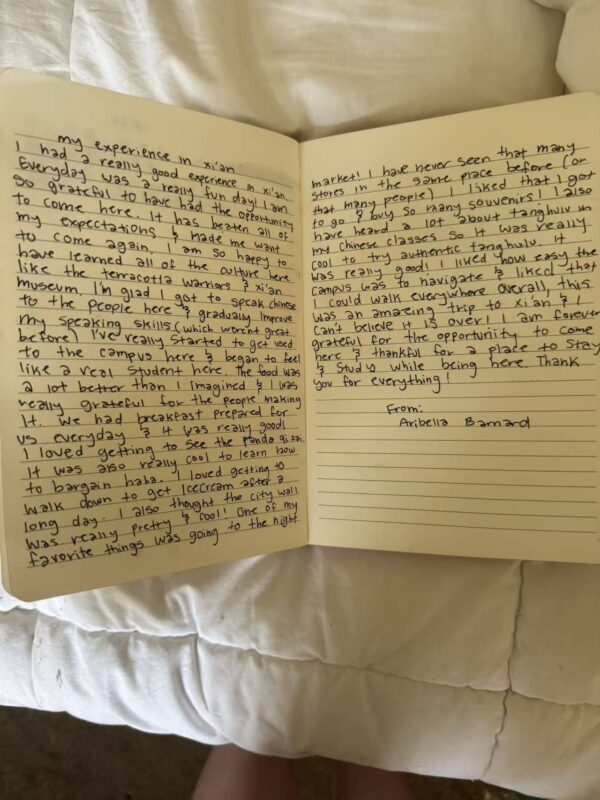 my experience in xi'an
I had a really good experience in xi'an.
Everyday was a really fun day! I am
so grateful to have had the opportunity
to come here. It has beaten all of
my expectations & made me want
to come again. I am so happy to
have learned all of the culture here
like the terracotta warriors & xi'an
museum. I'm glad I got to speak chinese
to the people here & gradually improve
my speaking skills (which werent great
before) I've really started to get used
to the campus here & began to feel
like a real student here. The food was
a lot better than I imagined & I was
really grateful for the people making
it. We had breakfast prepared for
us everyday & it was really good!
I loved getting to see the panda qi zai.
It was also really cool to learn how
to bargain haha. I loved getting to
walk down to get Icecream after a
long day. I also thought the city wall
was really pretty & cool! One of my
favorite things was going to the night
market! I have never seen that many
stores in the same place before (or
that many people) I liked that I got
to go & buy so many souvenirs! I also
have heard a lot about tanghulu in
my chinese classes so it was really
cool to try authentic tanghulu. It
was really good! I liked how easy the
campus was to navigate & liked that
I could walk everywhere. Overall, this
was an amazing trip to xi'an & I
can't believe it is over! I am forever
grateful for the opportunity to come
here & thankful for a place to stay
& study while being here. Thank
you for everything!
From:
Aribella Barnard